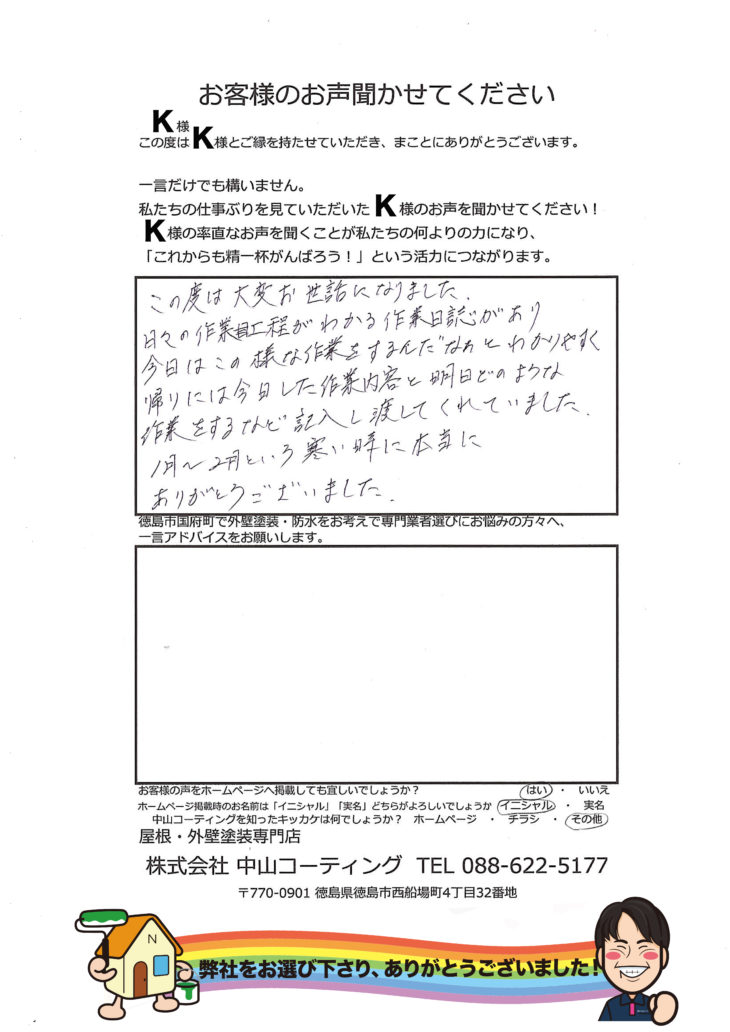 お客様のお声聞かせてください
K様
この度はK様とご縁を持たせていただき、まことにありがとうございます。
一言だけでも構いません。
私たちの仕事ぶりを見ていただいたK様のお声を聞かせてください！
K様の率直なお声を聞くことが私たちの何よりの力になり、
「これからも精一杯がんばろう！」という活力につながります。
この度は大変お世話になりました。
日々の作業工程がわかる作業日誌があり
今日はこの様な作業をするんだなぁとわかりやすく
帰りには今日した作業内容と明日どのような
作業をするなど記入し渡してくれていました。
1月～2月という寒い時に本当に
ありがとうございました。
徳島市国府町で外壁塗装・防水をお考えで専門業者選びにお悩みの方々へ、
一言アドバイスをお願いします。
お客様の声をホームページへ掲載しても宜しいでしょうか？ はい ・ いいえ
ホームページ掲載時のお名前は「イニシャル」「実名」どちらがよろしいでしょうか イニシャル ・ 実名
中山コーティングを知ったキッカケは何でしょうか？ ホームページ ・ チラシ ・ その他
屋根・外壁塗装専門店
株式会社 中山コーティング TEL 088-622-5177
〒770-0901 徳島県徳島市西船場町4丁目32番地
N
弊社をお選び下さり、ありがとうございました！